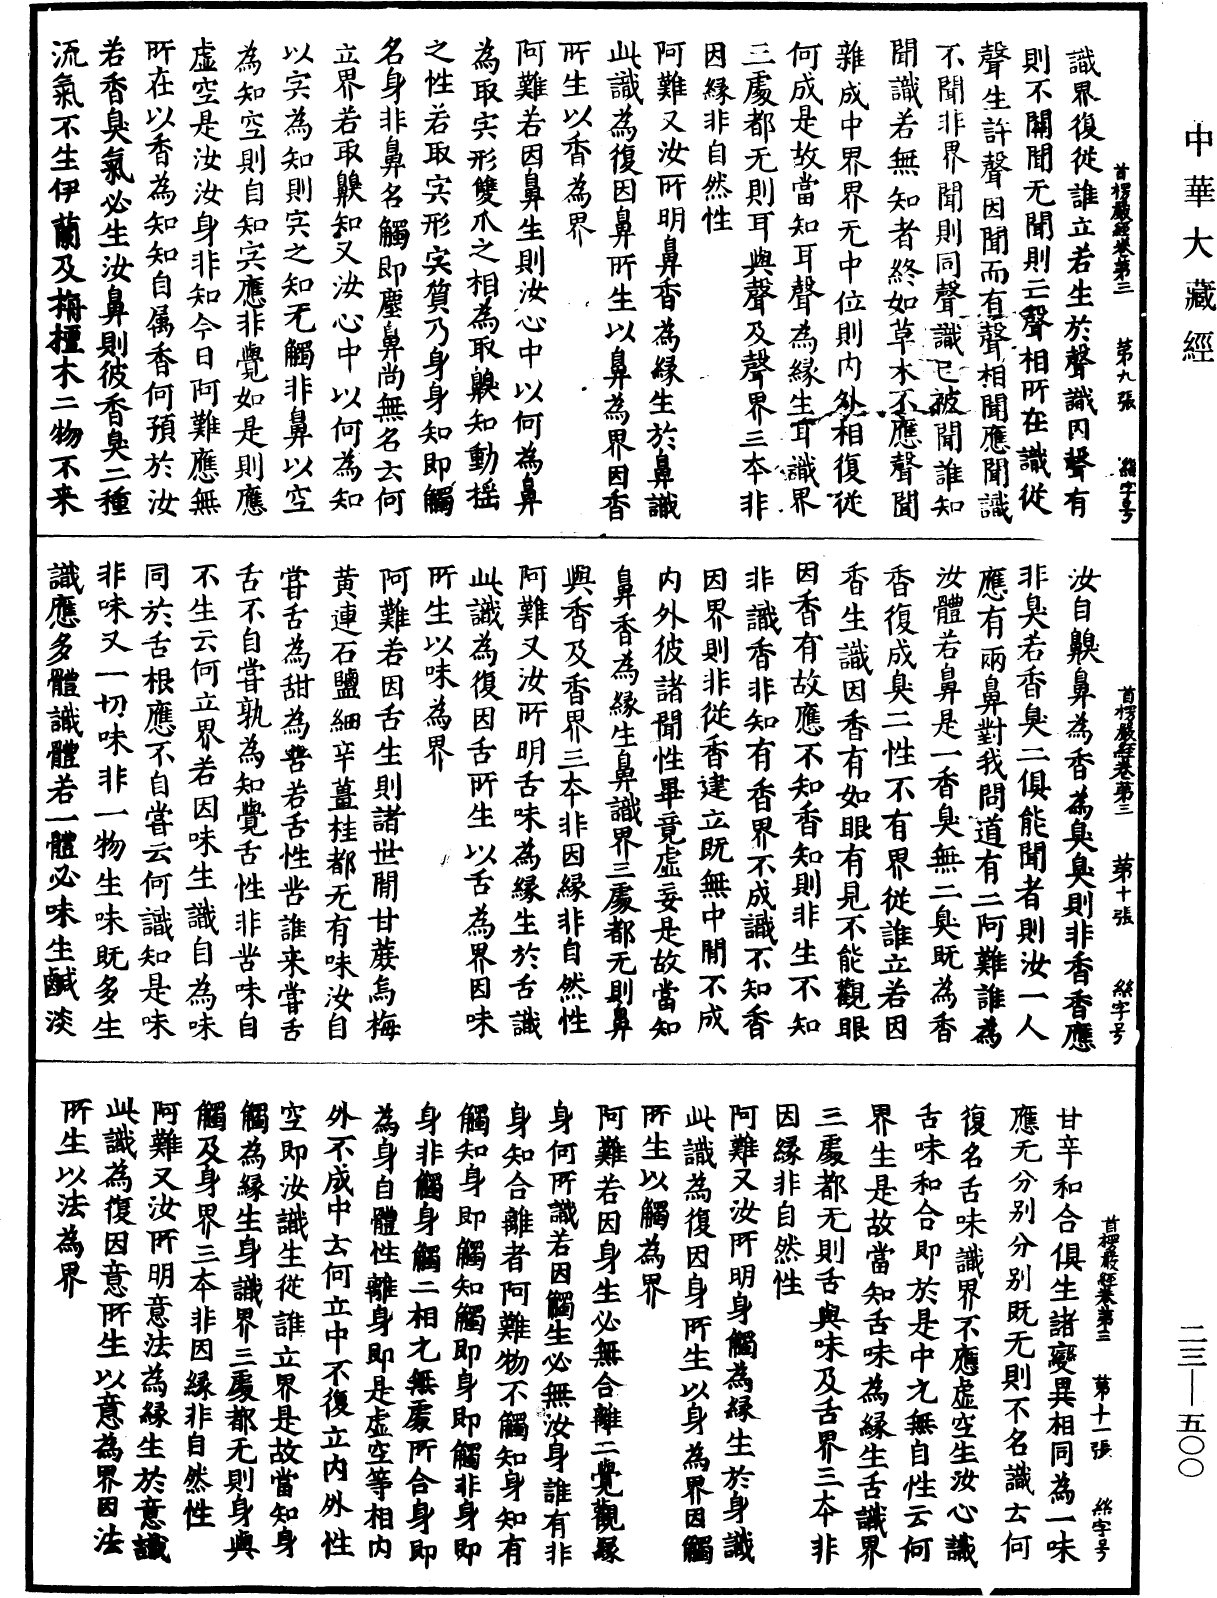 中華大藏經
首楞嚴經卷第三　第九張　絲字号
識界復從誰立若生於聲識因聲有
則不關聞无聞則亡聲相所在識從
聲生許聲因聞而有聲相聞應聞識
不聞非界聞則同聲識已被聞誰知
聞識若無知者終如草木不應聲聞
雜成中界界无中位則内外相復從
何成是故當知耳聲為緣生耳識界
三處都无則耳與聲及聲界三本非
因緣非自然性
阿難又汝所明鼻香為緣生於鼻識
此識為復因鼻所生以鼻為界因香
所生以香為界
阿難若因鼻生則汝心中以何為鼻
為取宍形雙爪之相為取齅知動揺
之性若取宍形宍質乃身身知即觸
名身非鼻名觸即塵鼻尚無名云何
立界若取齅知又汝心中以何為知
以宍為知則宍之知元觸非鼻以空
為知空則自知宍應非覺如是則應
虛空是汝汝身非知今日阿難應無
所在以香為知知自属香何預於汝
若香臭氣必生汝鼻則彼香臭二種
流氣不生伊蘭及栴檀木二物不来
首楞嚴經卷第三　第十張　絲字号
汝自齅鼻為香為臭臭則非香香應
非臭若香臭二俱能聞者則汝一人
應有兩鼻對我問道有二阿難誰為
汝體若鼻是一香臭無二臭既為香
香復成臭二性不有界從誰立若因
香生識因香有如眼有見不能觀眼
因香有故應不知香知則非生不知
非識香非知有香界不成識不知香
因界則非從香建立既無中間不成
内外彼諸聞性畢竟虛妄是故當知
鼻香為緣生鼻識界三處都无則鼻
與香及香界三本非因緣非自然性
阿難又汝所明舌味為緣生於舌識
此識為復因舌所生以舌為界因味
所生以味為界
阿難若因舌生則諸世間甘蔗烏梅
黄連石鹽細辛薑桂都无有味汝自
甞舌為甜為苦若舌性苦誰来甞舌
舌不自甞孰為知覺舌性非苦味自
不生云何立界若因味生識自為味
同於舌根應不自甞云何識知是味
非味又一切味非一物生味既多生
識應多體識體若一體必味生鹹淡
首楞嚴經卷第三　第十一張　絲字号
甘辛和合俱生諸變異相同為一味
應无分别分别既无則不名識云何
復名舌味識界不應虛空生汝心識
舌味和合即於是中元無自性云何
界生是故當知舌味為緣生舌識界
三處都无則舌與味及舌界三本非
因緣非自然性
阿難又汝所明身觸為緣生於身識
此識為復因身所生以身為界因觸
所生以觸為界
阿難若因身生必無合離二覺觀緣
身何所識若因觸生必無汝身誰有非
身知合離者阿難物不觸知身知有
觸知身即觸知觸即身即觸非身即
身非觸身觸二相元無處所合身即
為身自體性離身即是虛空等相内
外不成中云何立中不復立内外性
空即汝識生從誰立界是故當知身
觸為緣生身識界三處都无則身與
觸及身界三本非因緣非自然性
阿難又汝所明意法為緣生於意識
此識為復因意所生以意為界因法
所生以法為界
二三—五〇〇